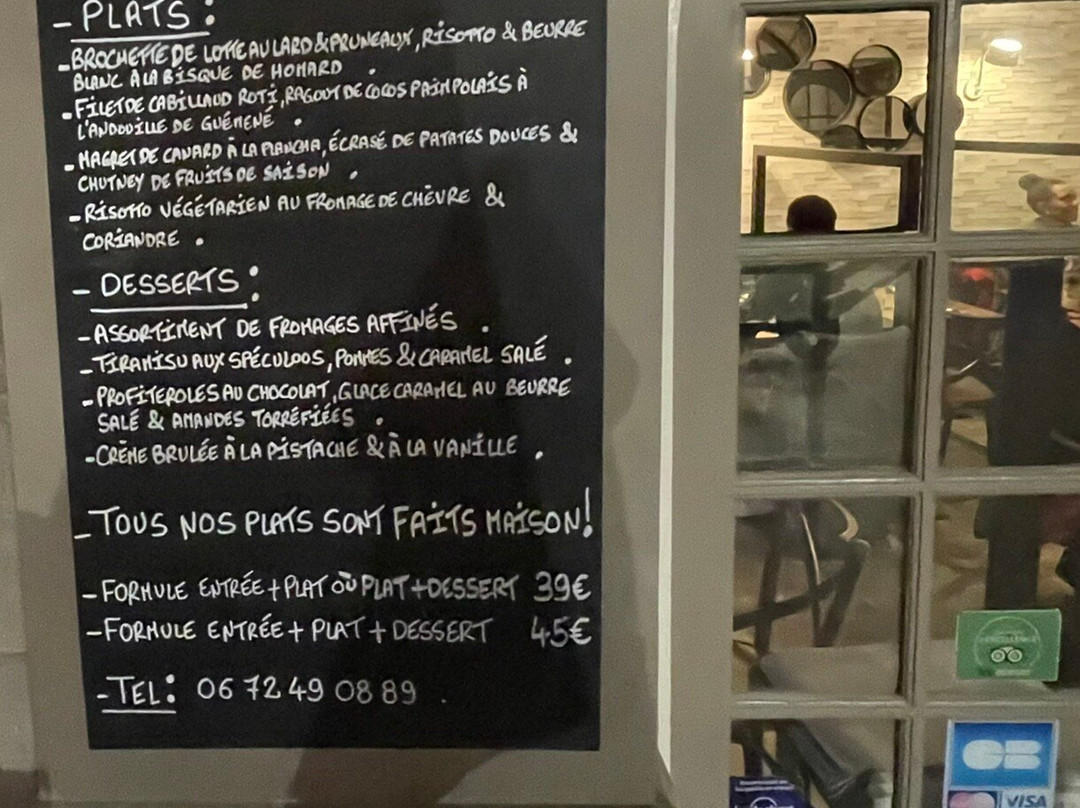 - PLATS :
- BROCHETTE DE LOTTE AU LARD & PRUNEAUX, RISOTTO & BEURRE
BLANC À LA BISQUE DE HOMARD .
- FILET DE CABILLAUD ROTI, RAGOUT DE COCOS PAIMPOLAIS À
L'ANDOUILLE DE GUÉMENÉ .
- MAGRET DE CANARD À LA PLANCHA, ÉCRASÉ DE PATATES DOUCES &
CHUTNEY DE FRUITS DE SAISON .
- RISOTTO VÉGÉTARIEN AU FROMAGE DE CHÈVRE &
CORIANDRE .
- DESSERTS :
- ASSORTIMENT DE FROMAGES AFFINÉS .
- TIRAMISU AUX SPÉCULOOS, POMMES & CARAMEL SALÉ .
- PROFITEROLES AU CHOCOLAT, GLACE CARAMEL AU BEURRE
SALÉ & AMANDES TORRÉFIÉES .
- CRÈME BRULÉE À LA PISTACHE & À LA VANILLE .
- TOUS NOS PLATS SONT FAITS MAISON!
- FORMULE ENTRÉE + PLAT OÙ PLAT + DESSERT 39€
- FORMULE ENTRÉE + PLAT + DESSERT 45€
- TEL : 06 72 49 08 89 .
CB
VISA